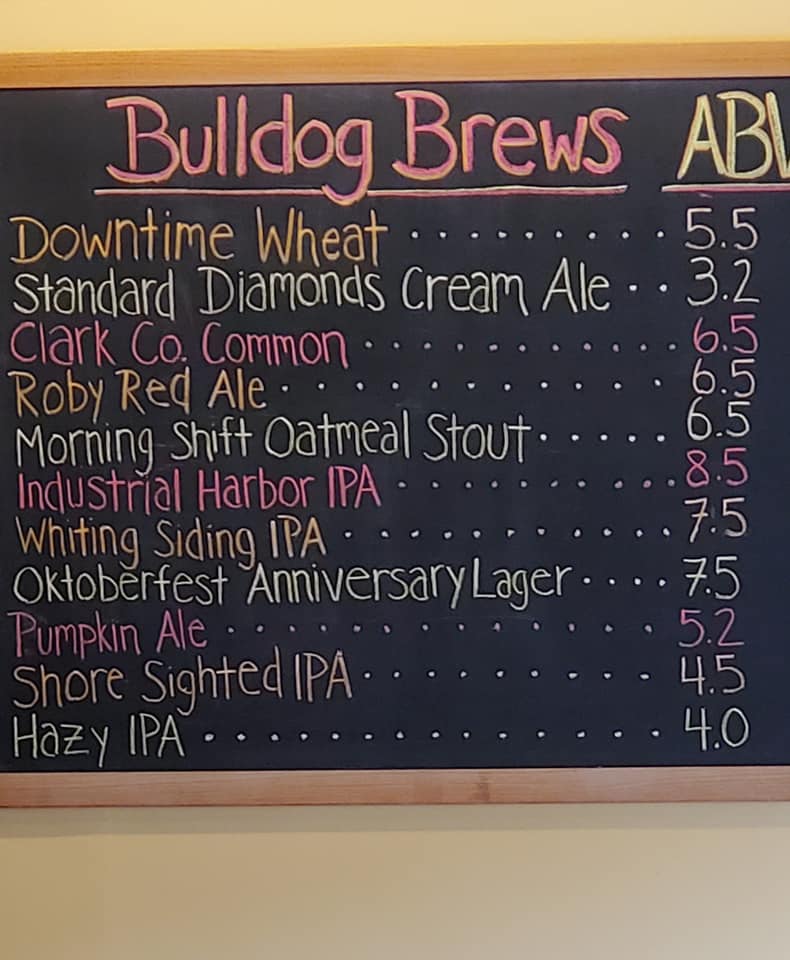 Bulldog Brews ABV
Downtime Wheat . . . . . . . . . 5.5
Standard Diamonds Cream Ale . . 3.2
Clark Co. Common . . . . . . . . . . . 6.5
Roby Red Ale . . . . . . . . . . . . 6.5
Morning Shift Oatmeal Stout . . . . . 6.5
Industrial Harbor IPA . . . . . . . . . . . 8.5
Whiting Siding IPA . . . . . . . . . . . 7.5
Oktoberfest Anniversary Lager . . . . 7.5
Pumpkin Ale . . . . . . . . . . . . 5.2
Shore Sighted IPA . . . . . . . . . 4.5
Hazy IPA . . . . . . . . . . . . . 4.0